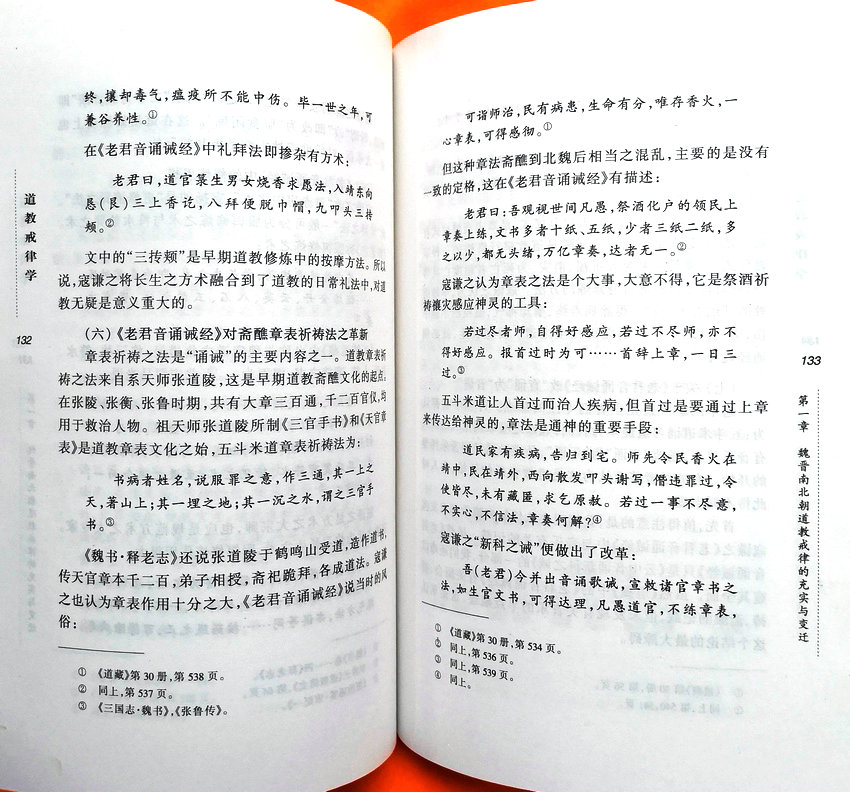 终,攘却毒气,瘟疫所不能中伤。毕一世之年,可
兼谷养性。①
在《老君音诵诫经》中礼拜法即掺杂有方术:
老君曰,道官箓生男女烧香求愿法,入靖东向
恳(艮)三上香讫,八拜便脱巾帽,九叩头三抟
颊。②
文中的“三抟颊”是早期道教修炼中的按摩方法。所以
说,寇谦之将长生之方术融合到了道教的日常礼法中,对道
教无疑是意义重大的。
(六)《老君音诵诫经》对斋醮章表祈祷法之革新
章表祈祷之法是“诵诫”的主要内容之一。道教章表祈
祷之法来自系天师张道陵,这是早期道教斋醮文化的起点。
在张陵、张衡、张鲁时期,共有大章三百通,千二百官仪,均
用于救治人物。祖天师张道陵所制《三官手书》和《天官章
表》是道教章表文化之始,五斗米道章表祈祷法为:
书病者姓名,说服罪之意,作三通,其一上之
天,著山上;其一埋之地;其一沉之水,谓之三官手
书。③
《魏书·释老志》还说张道陵于鹤鸣山受道,造作道书,
传天官章本千二百,弟子相授,斋祀跪拜,各成道法。寇谦
之也认为章表作用十分之大,《老君音诵诫经》说当时的风
俗:
① 《道藏》第 30 册,第 538 页。
② 同上,第 537 页。
③ 《三国志·魏书》,《张鲁传》。
道教戒律学
132
可诣师治,民有病患,生命有分,唯存香火,一
心章表,可得感彻。①
但这种章法斋醮到北魏后相当之混乱,主要的是没有
一致的定格,这在《老君音诵诫经》有描述:
老君曰:吾观视世间凡愚,祭酒化户的领民上
章奏上练,文书多者十纸、五纸,少者三纸二纸,多
之以少,都无头绪,万亿章奏,达者无一。②
寇谦之认为章表之法是个大事,大意不得,它是祭酒祈
祷禳灾感应神灵的工具:
若过尽者师,自得好感应,若过不尽师,亦不
得好感应。报首过时为可……首辞上章,一日三
过。③
五斗米道让人首过而治人疾病,但首过是要通过上章
来传达给神灵的,章法是通神的重要手段:
道民家有疾病,告归到宅。师先令民香火在
靖中,民在靖外,西向散发叩头谢写,僭违罪过,令
使皆尽,未有藏匿,求乞原赦。若过一事不尽意,
不实心,不信法,章奏何解?④
寇谦之“新科之诫”便做出了改革:
吾(老君)今并出音诵歌诫,宣敕诸官章书之
法,如生官文书,可得达理,凡愚道官,不练章表,
① 《道藏》第 30 册,第 534 页。
② 同上,第 536 页。
③ 同上,第 539 页。
④ 同上。
133
第一章 魏晋南北朝道教戒律的充实与变迁